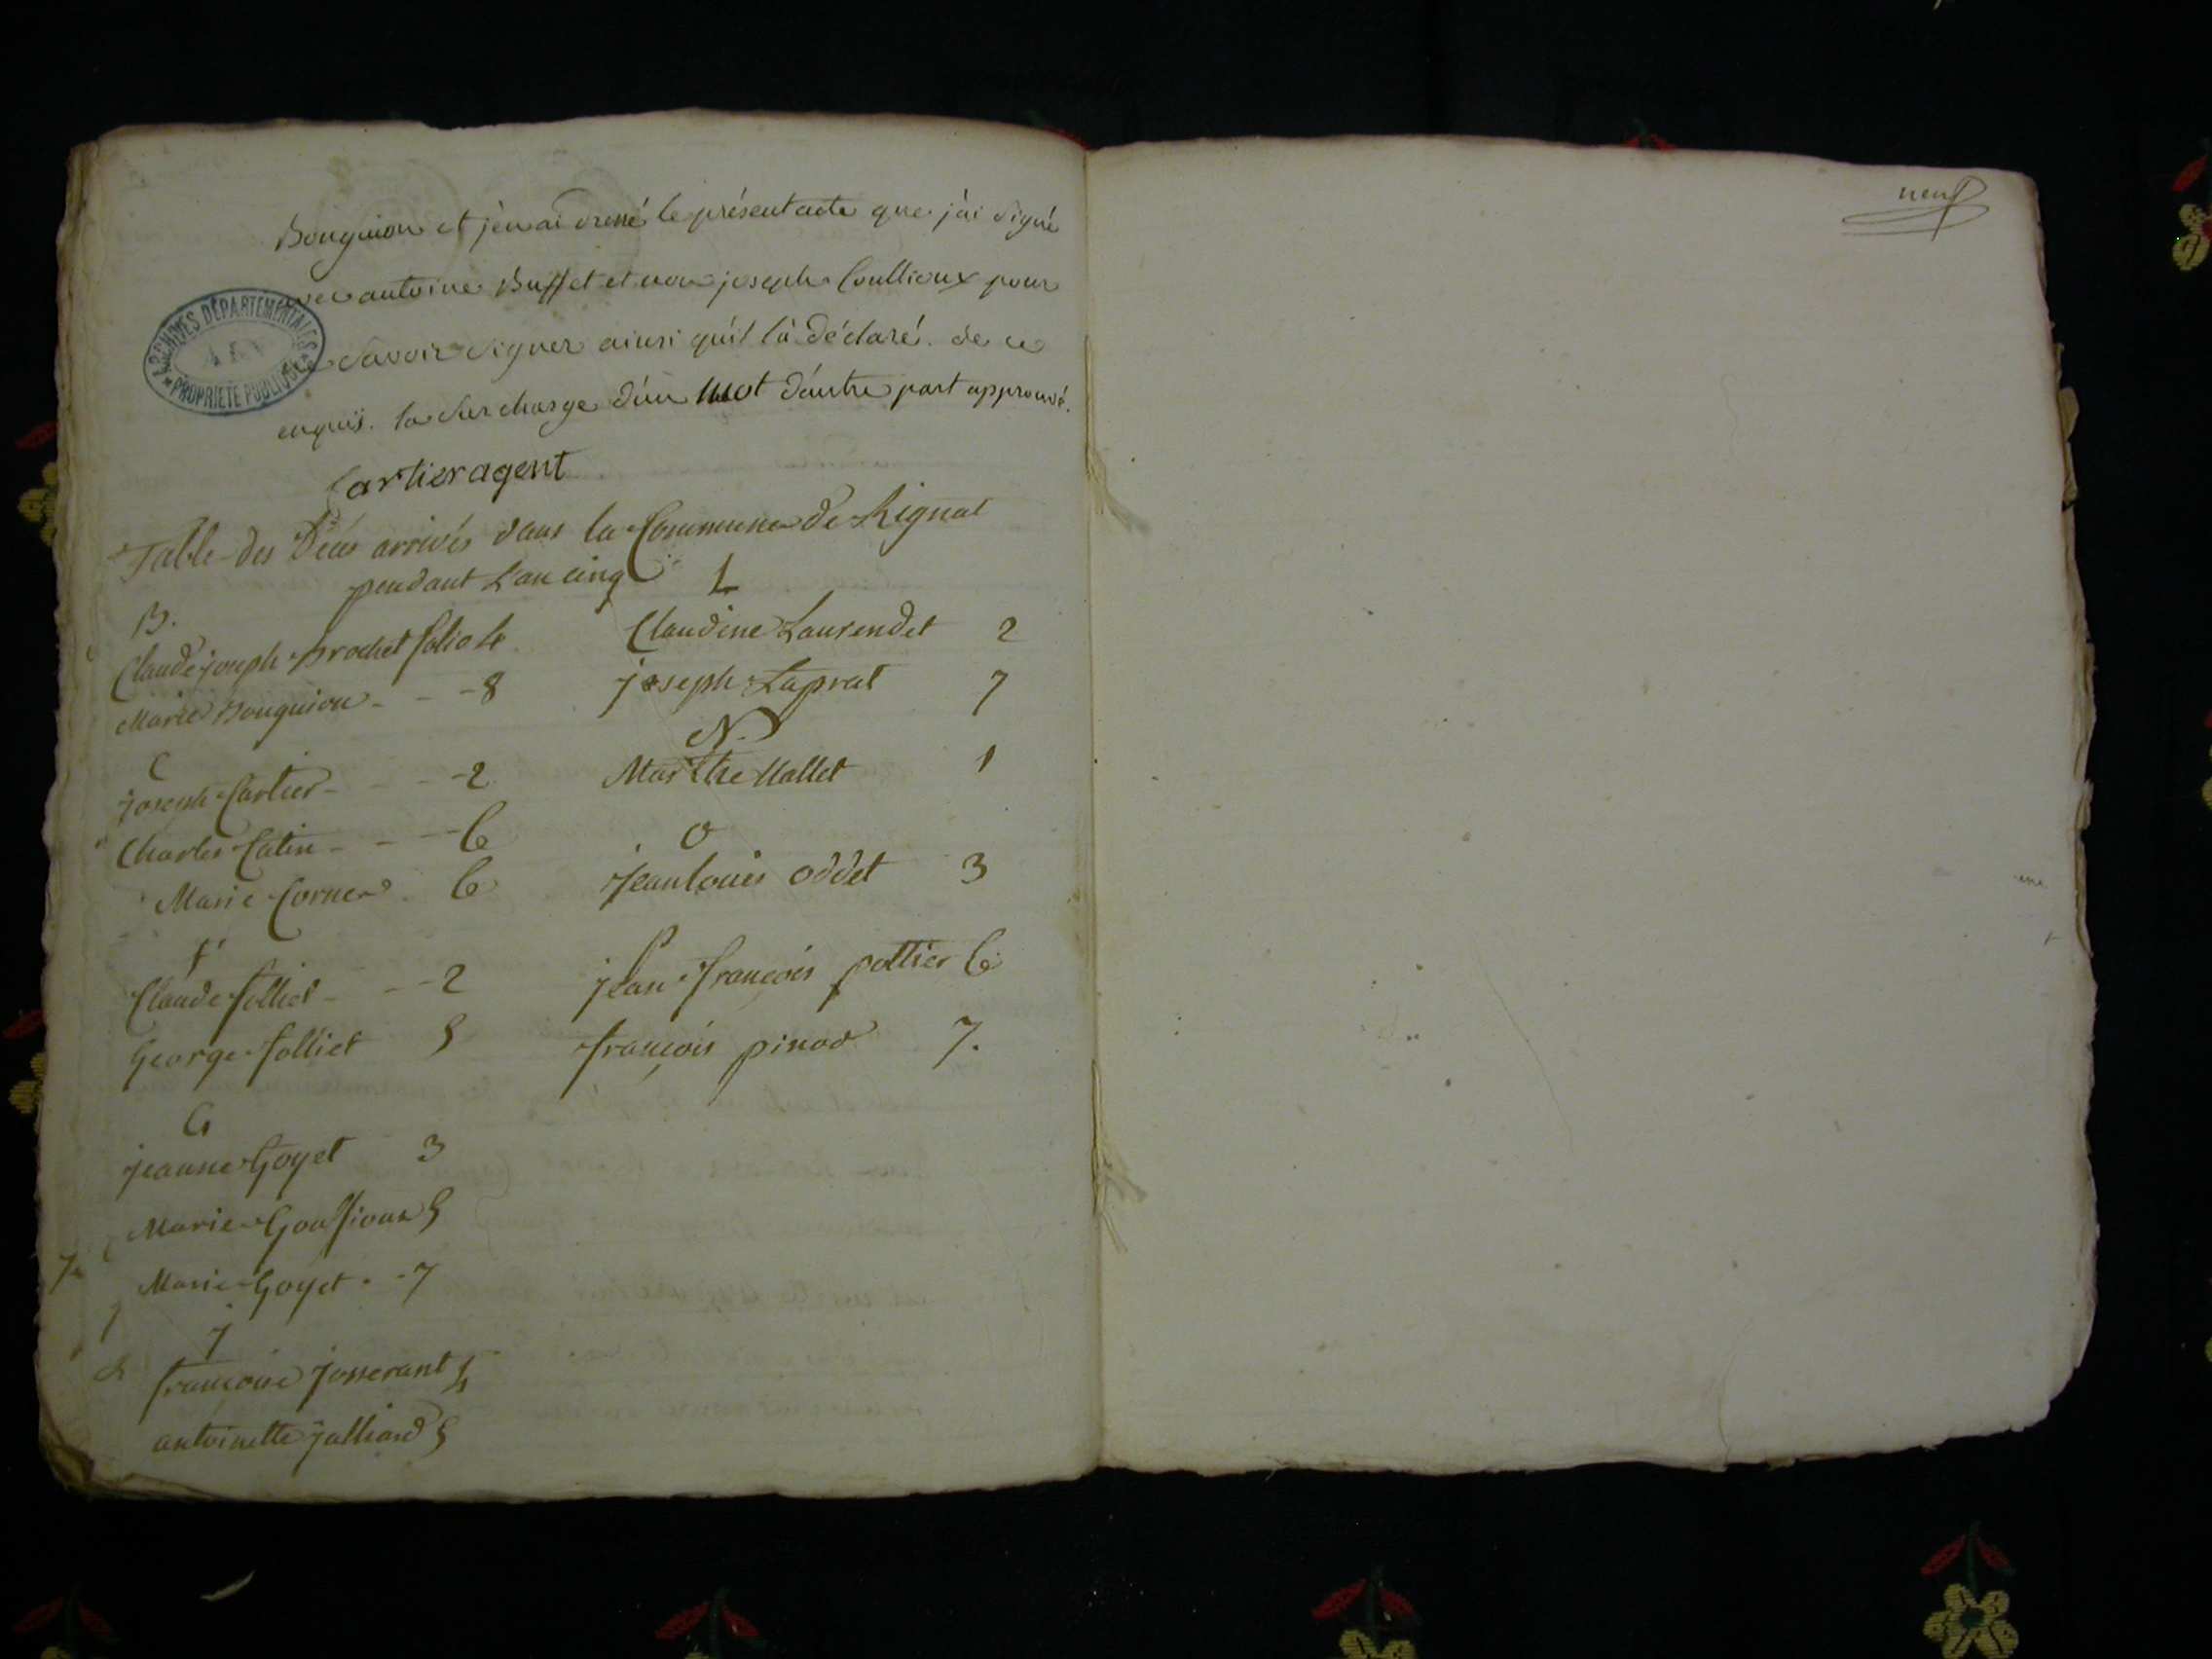 Bouguion et j'en ai dressé le présent acte que j'ai signé
avec antoine Buffet et non joseph Coullioux pour
ne savoir signer ainsi qu'il l'a déclaré. de ce
enquis. la surcharge d'un mot d'autre part approuvé.
Cartier agent
Table des Décés arrivés dans la Commune de Rignat
pendant L'an cinq
B.
Claude joseph Brochet folio 4
Marie Bouguion - - - 8
C
joseph Cartier - - - 2
Charles Catin - - - 6
Marie Corner 6
F
Claude folliet - - - 2
George folliet 5
G
jeanne Goyet 3
Marie Gouffioux 5
Marie Goyet - - 7
J
françoise josserant 4
antoinette jalliard 5
L
Claudine Laurendet 2
joseph Laprat 7
N
Marthe Nallet 1
O
jean louis oddet 3
P
jean françois pottier 6
françois pinod 7.
neuf
ARCHIVES DÉPARTEMENTALES
AIN
PROPRIÉTÉ PUBLIQUE